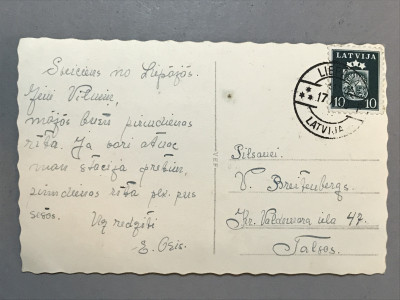 Sveiciens no Liepājās.
Jeņi Vilmiņ,
mājās buru pirmdienas
rītā. Ja vari atnāc
man stacijā pretim,
pirmdienas rītā plx. pus
sešos.
Uz redzēti
E. Osis.
LATVIJA
10 10
LIE
17
LATVIJA
Pilsonei.
V. Breitenbergs.
Kr. Valdemara iela 47.
Talsos.